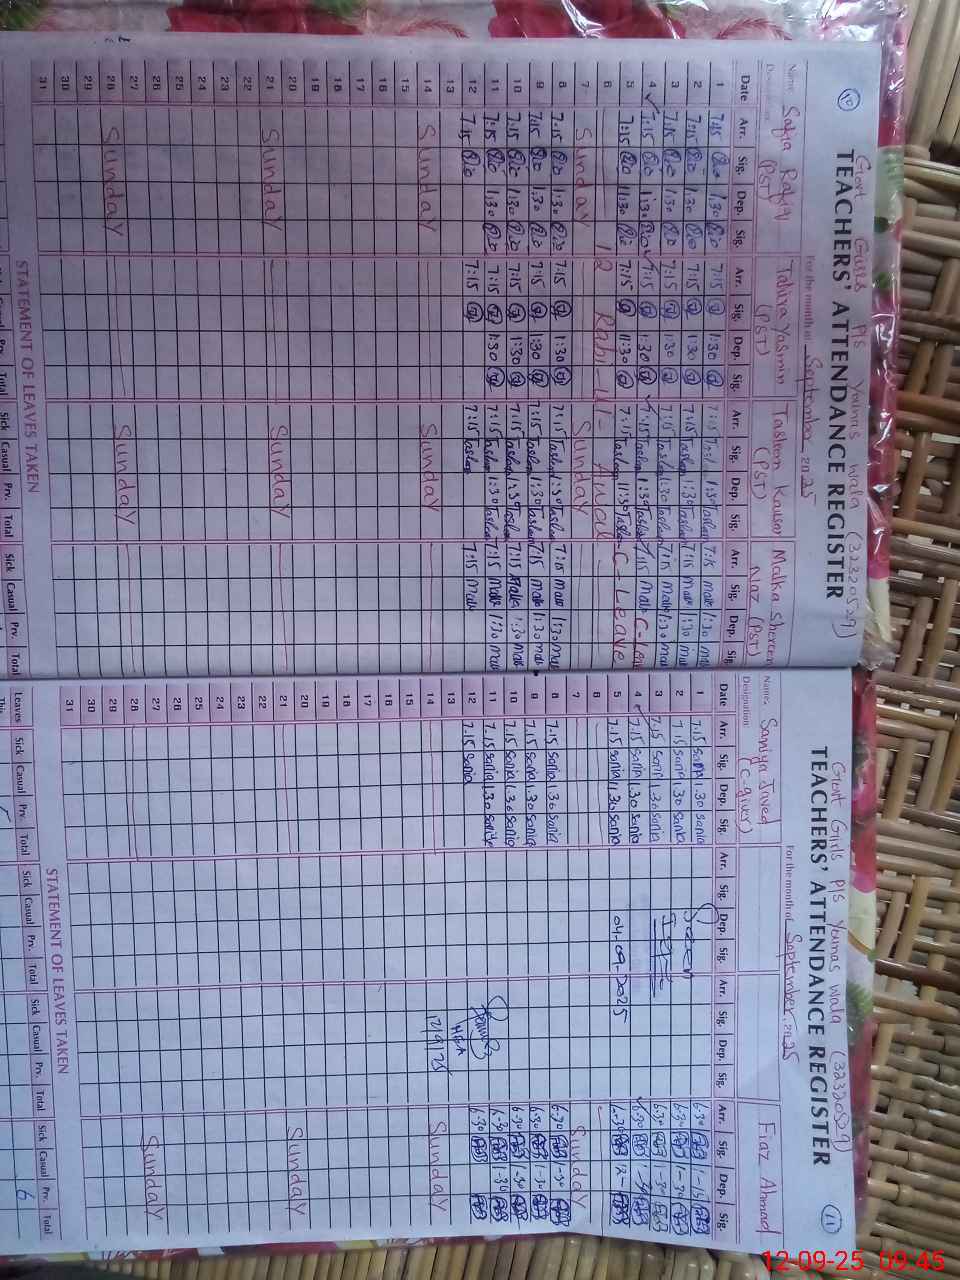 10
Govt Girls P/S Younas wala (32320529)
TEACHERS' ATTENDANCE REGISTER
For the month of September 2025
Name Safia Rafiq Tahira Yasmin Tasleem Kausar Malka Shereen
Designation (PST) (PST) (PST) Naz (PST)
Date Arr. Sig. Dep. Sig. Arr. Sig. Dep. Sig. Arr. Sig. Dep. Sig. Arr. Sig. Dep. Sig.
1 7:15 1:30 7:15 1:30 7:15 1:30 7:15 1:30
2 7:15 1:30 7:15 1:30 7:15 1:30 7:15 1:30
3 7:15 1:30 7:15 1:30 7:15 1:30 7:15 1:30
4 7:15 1:30 7:15 1:30 7:15 1:30 7:15 C-Leave
5 7:15 11:30 7:15 11:30 7:15 11:30 C-Leave
6 12 Rabi-ul-Awal
7 Sunday Sunday
8 7:15 1:30 7:15 1:30 7:15 1:30 7:15 1:30
9 7:15 1:30 7:15 1:30 7:15 1:30 7:15 1:30
10 7:15 1:30 7:15 1:30 7:15 1:30 7:15 1:30
11 7:15 1:30 7:15 1:30 7:15 1:30 7:15 1:30
12 7:15 7:15 7:15 7:15
13
14 Sunday Sunday
15
16
17
18
19
20
21 Sunday Sunday
22
23
24
25
26
27
28 Sunday Sunday
29
30
31
STATEMENT OF LEAVES TAKEN
Sick Casual Prv. Total Sick Casual Prv. Total
11
Govt Girls P/S Younas wala (32320529)
TEACHERS' ATTENDANCE REGISTER
For the month of September 2025
Name Saniya Javed Fiaz Ahmad
Designation (C-giver)
Date Arr. Sig. Dep. Sig. Arr. Sig. Dep. Sig. Arr. Sig. Dep. Sig. Arr. Sig. Dep. Sig.
1 7:15 sania 1:30 sania 6-30 1-15
2 7:15 sania 1:30 sania 6-30 1-30
3 7:15 sania 1:30 sania 6-30 1-30
4 7:15 sania 1:30 sania 6-30 1-30
5 7:15 sania 11:30 sania 04-09-2025 6-30 12-
6
7 Sunday
8 7:15 sania 1:30 sania 6-30 1-30
9 7:15 sania 1:30 sania 6-30 1-30
10 7:15 sania 1:30 sania 6-30 1-30
11 7:15 sania 1:30 saniya 6-30 1-30
12 7:15 sania 6-30
13
14 12/9/25 Sunday
15
16
17
18
19
20
21 Sunday
22
23
24
25
26
27
28 Sunday
29
30
31
STATEMENT OF LEAVES TAKEN
Leaves Sick Casual Prv. Total Sick Casual Prv. Total Sick Casual Prv. Total Sick Casual Prv. Total
6
12-09-25 09:45